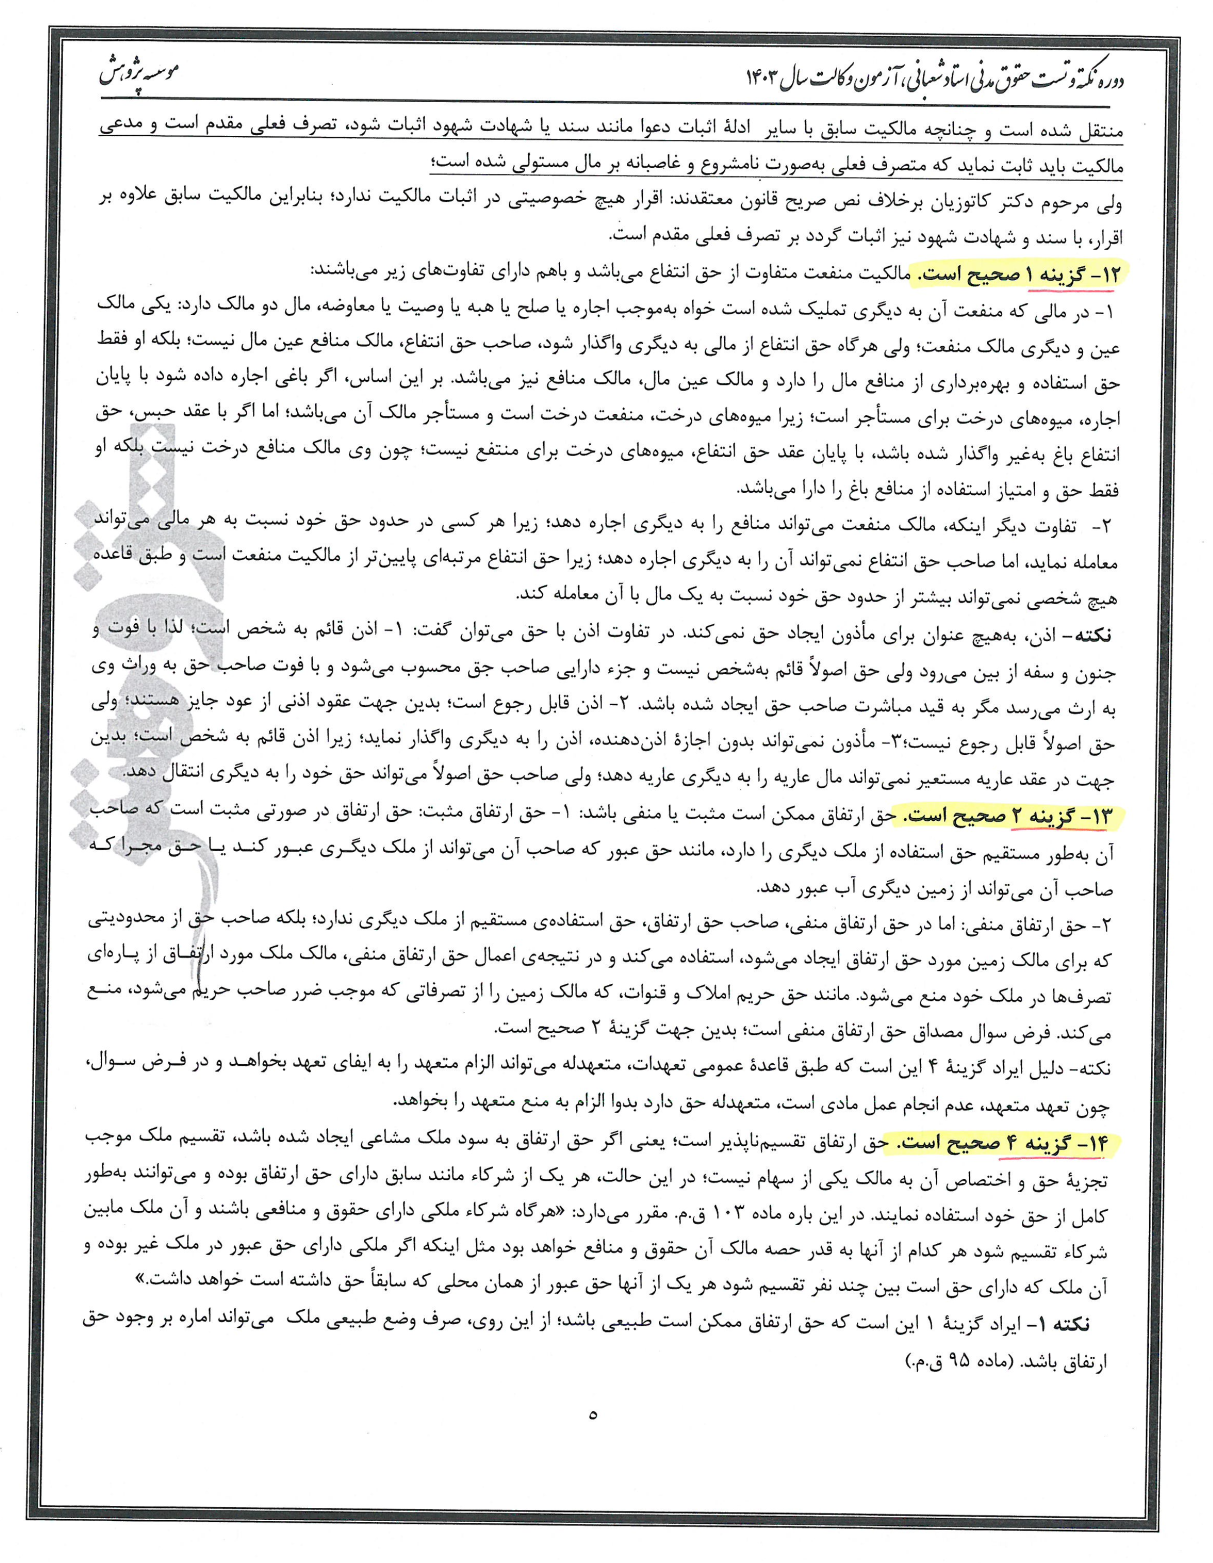 دوره نکته و تست حقوق مدنی استاد شعبانی، آزمون وکالت سال ۱۴۰۳
موسسه پژوهش
منتقل شده است و چنانچه مالکیت سابق با سایر ادلهٔ اثبات دعوا مانند سند یا شهادت شهود اثبات شود، تصرف فعلی مقدم است و مدعی
مالکیت باید ثابت نماید که متصرف فعلی به‌صورت نامشروع و غاصبانه بر مال مستولی شده است؛
ولی مرحوم دکتر کاتوزیان برخلاف نص صریح قانون معتقدند: اقرار هیچ خصوصیتی در اثبات مالکیت ندارد؛ بنابراین مالکیت سابق علاوه بر
اقرار، با سند و شهادت شهود نیز اثبات گردد بر تصرف فعلی مقدم است.
۱۲- گزینه ۱ صحیح است. مالکیت منفعت متفاوت از حق انتفاع می‌باشد و باهم دارای تفاوت‌های زیر می‌باشند:
۱- در مالی که منفعت آن به دیگری تملیک شده است خواه به‌موجب اجاره یا صلح یا هبه یا وصیت یا معاوضه، مال دو مالک دارد: یکی مالک
عین و دیگری مالک منفعت؛ ولی هرگاه حق انتفاع از مالی به دیگری واگذار شود، صاحب حق انتفاع، مالک منافع عین مال نیست؛ بلکه او فقط
حق استفاده و بهره‌برداری از منافع مال را دارد و مالک عین مال، مالک منافع نیز می‌باشد. بر این اساس، اگر باغی اجاره داده شود با پایان
اجاره، میوه‌های درخت برای مستأجر است؛ زیرا میوه‌های درخت، منفعت درخت است و مستأجر مالک آن می‌باشد؛ اما اگر با عقد حبس، حق
انتفاع باغ به‌غیر واگذار شده باشد، با پایان عقد حق انتفاع، میوه‌های درخت برای منتفع نیست؛ چون وی مالک منافع درخت نیست بلکه او
فقط حق و امتیاز استفاده از منافع باغ را دارا می‌باشد.
۲- تفاوت دیگر اینکه، مالک منفعت می‌تواند منافع را به دیگری اجاره دهد؛ زیرا هر کسی در حدود حق خود نسبت به هر مالی می‌تواند
معامله نماید، اما صاحب حق انتفاع نمی‌تواند آن را به دیگری اجاره دهد؛ زیرا حق انتفاع مرتبه‌ای پایین‌تر از مالکیت منفعت است و طبق قاعده
هیچ شخصی نمی‌تواند بیشتر از حدود حق خود نسبت به یک مال با آن معامله کند.
نکته- اذن، به‌هیچ عنوان برای مأذون ایجاد حق نمی‌کند. در تفاوت اذن با حق می‌توان گفت: ۱- اذن قائم به شخص است؛ لذا با فوت و
جنون و سفه از بین می‌رود ولی حق اصولاً قائم به‌شخص نیست و جزء دارایی صاحب جق محسوب می‌شود و با فوت صاحب حق به وراث وی
به ارث می‌رسد مگر به قید مباشرت صاحب حق ایجاد شده باشد. ۲- اذن قابل رجوع است؛ بدین جهت عقود اذنی از عود جایز هستند؛ ولی
حق اصولاً قابل رجوع نیست؛۳- مأذون نمی‌تواند بدون اجازهٔ اذن‌دهنده، اذن را به دیگری واگذار نماید؛ زیرا اذن قائم به شخص است؛ بدین
جهت در عقد عاریه مستعیر نمی‌تواند مال عاریه را به دیگری عاریه دهد؛ ولی صاحب حق اصولاً می‌تواند حق خود را به دیگری انتقال دهد.
۱۳- گزینه ۲ صحیح است. حق ارتفاق ممکن است مثبت یا منفی باشد: ۱- حق ارتفاق مثبت: حق ارتفاق در صورتی مثبت است که صاحب
آن به‌طور مستقیم حق استفاده از ملک دیگری را دارد، مانند حق عبور که صاحب آن می‌تواند از ملک دیگری عبور کند یا حق مجرا که
صاحب آن می‌تواند از زمین دیگری آب عبور دهد.
۲- حق ارتفاق منفی: اما در حق ارتفاق منفی، صاحب حق ارتفاق، حق استفاده‌ی مستقیم از ملک دیگری ندارد؛ بلکه صاحب حق از محدودیتی
که برای مالک زمین مورد حق ارتفاق ایجاد می‌شود، استفاده می‌کند و در نتیجه‌ی اعمال حق ارتفاق منفی، مالک ملک مورد ارتفاق از پاره‌ای
تصرف‌ها در ملک خود منع می‌شود. مانند حق حریم املاک و قنوات، که مالک زمین را از تصرفاتی که موجب ضرر صاحب حریم می‌شود، منع
می‌کند. فرض سوال مصداق حق ارتفاق منفی است؛ بدین جهت گزینهٔ ۲ صحیح است.
نکته- دلیل ایراد گزینهٔ ۴ این است که طبق قاعدهٔ عمومی تعهدات، متعهدله می‌تواند الزام متعهد را به ایفای تعهد بخواهد و در فرض سوال،
چون تعهد متعهد، عدم انجام عمل مادی است، متعهدله حق دارد بدوا الزام به منع متعهد را بخواهد.
۱۴- گزینه ۴ صحیح است. حق ارتفاق تقسیم‌ناپذیر است؛ یعنی اگر حق ارتفاق به سود ملک مشاعی ایجاد شده باشد، تقسیم ملک موجب
تجزیهٔ حق و اختصاص آن به مالک یکی از سهام نیست؛ در این حالت، هر یک از شرکاء مانند سابق دارای حق ارتفاق بوده و می‌توانند به‌طور
کامل از حق خود استفاده نمایند. در این باره ماده ۱۰۳ ق.م. مقرر می‌دارد: «هرگاه شرکاء ملکی دارای حقوق و منافعی باشند و آن ملک مابین
شرکاء تقسیم شود هر کدام از آنها به قدر حصه مالک آن حقوق و منافع خواهد بود مثل اینکه اگر ملکی دارای حق عبور در ملک غیر بوده و
آن ملک که دارای حق است بین چند نفر تقسیم شود هر یک از آنها حق عبور از همان محلی که سابقاً حق داشته است خواهد داشت.»
نکته ۱- ایراد گزینهٔ ۱ این است که حق ارتفاق ممکن است طبیعی باشد؛ از این روی، صرف وضع طبیعی ملک می‌تواند اماره بر وجود حق
ارتفاق باشد. (ماده ۹۵ ق.م.)
۵
پژوهش